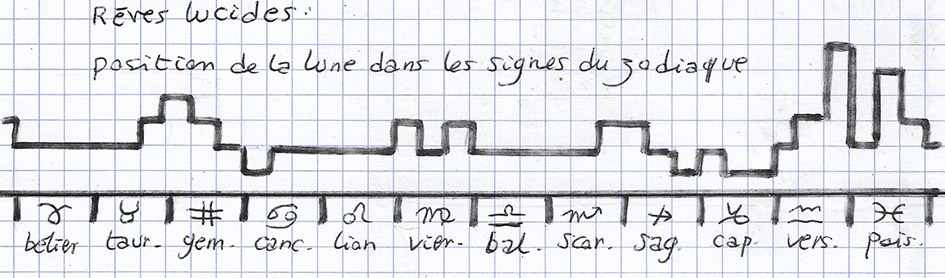 Rêves lucides:
position de la lune dans les signes du zodiaque
♈ ♉ ♊ ♋ ♌ ♍ ♎ ♏ ♐ ♑ ♒ ♓
bélier taur. gem. canc. lion vier. bal. scor. sag. cap. vers. pois.